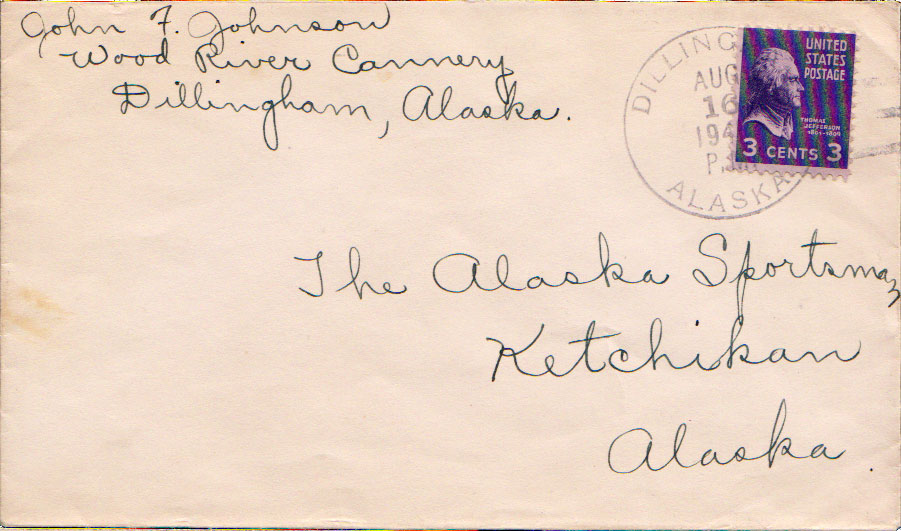 John F. Johnson
Wood River Cannery
Dillingham, Alaska.
DILLING
AUG
16
194
P.M
ALASKA
UNITED
STATES
POSTAGE
THOMAS
JEFFERSON
1801-1809
3 CENTS 3
The Alaska Sportsman
Ketchikan
Alaska.